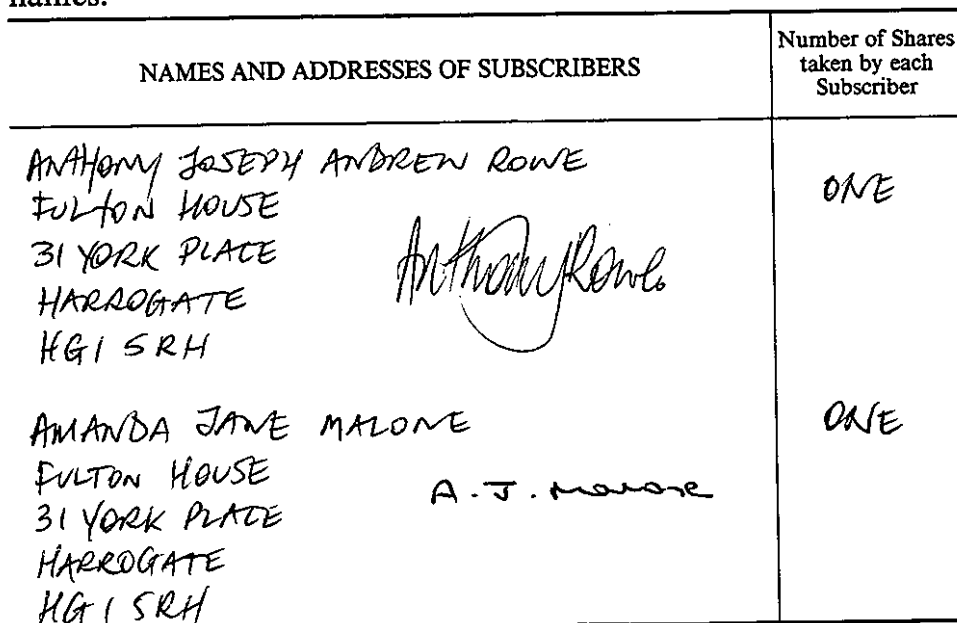 names.
NAMES AND ADDRESSES OF SUBSCRIBERS
Number of Shares
taken by each
Subscriber
ANTHONY JOSEPH ANDREW ROWE
FULTON HOUSE
31 YORK PLACE
HARROGATE
HG1 5RH
Anthony Rowe
ONE
AMANDA JANE MALONE
FULTON HOUSE
31 YORK PLACE
HARROGATE
HG1 5RH
A. J. Malone
ONE